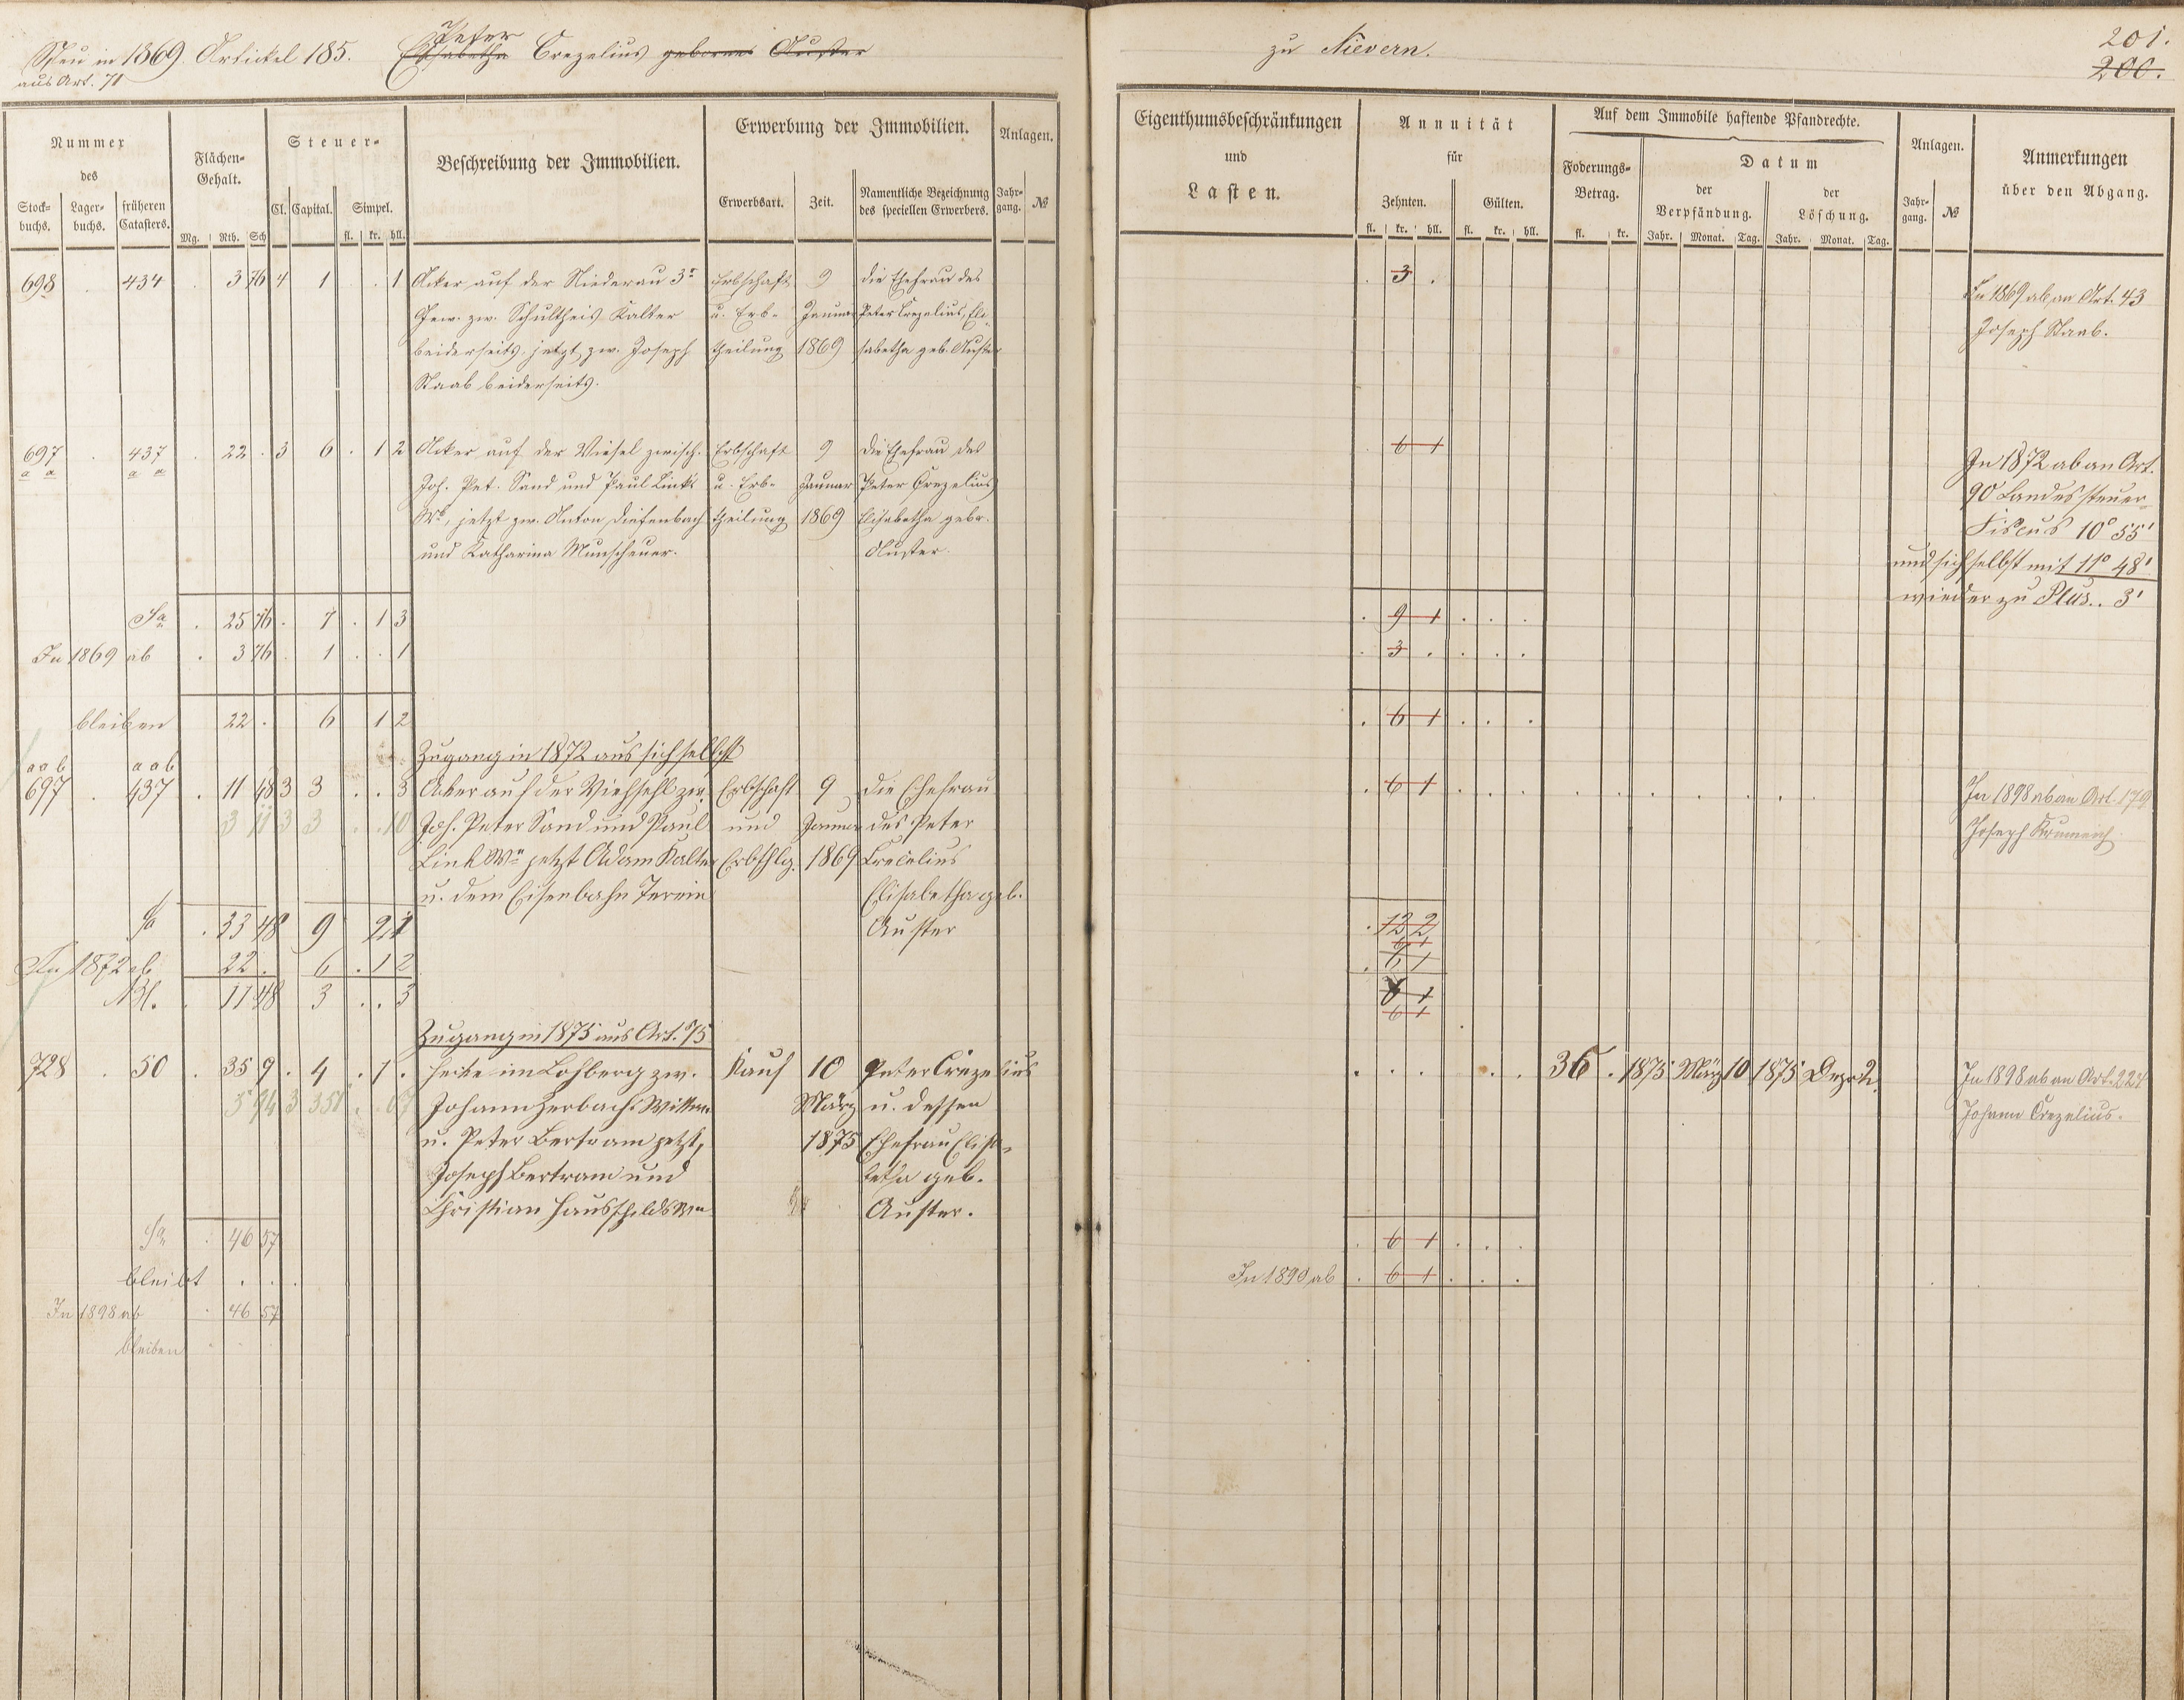 Neu in 1869. Artickel 185. Peter Elisabetha Crezelius geborne Auster
aus Art. 71
zu Nievern.
201.
200.
Nummer des
Stock-buchs. Lager-buchs. früheren Catasters.
Flächen-Gehalt.
Mg. Rth. Sch
Steuer-
Cl. Capital. Simpel.
fl. kr. hll.
Beschreibung der Immobilien.
Erwerbung der Immobilien.
Erwerbsart. Zeit. Namentliche Bezeichnung des speciellen Erwerbers.
Anlagen.
Jahr-gang. №
Eigenthumsbeschränkungen und Lasten.
Annuität für
Zehnten. Gülten.
fl. kr. hll. fl. kr. hll.
Auf dem Immobile haftende Pfandrechte.
Foderungs-Betrag.
fl. kr.
Datum
der Verpfändung. der Löschung.
Jahr. Monat. Tag. Jahr. Monat. Tag.
Anlagen.
Jahr-gang. №
Anmerkungen über den Abgang.
698 . 434 . 3 76 4 1 . . 1 Acker auf der Niederau 3r Erbschaft 9 die Ehefrau des . 3 .
Gew. zw. Schultheis Kalter u. Erb- Januar Peter Crezelius, Eli- In 1869 ab an Art. 43
beiderseits jetzt zw. Joseph theilung 1869 sabetha geb. Auster Joseph Staab.
Staab beiderseits.
697 . 437 . 22 . 3 6 . 1 2 Acker auf der Viesel zwisch. Erbschaft 9 die Ehefrau des 6 1
a a a a
Joh. Pet. Sand und Paul Links u. Erb- Januar Peter Crezelius In 1872 ab an Art.
We, jetzt zw. Anton Diefenbach theilung 1869 Elisabetha gebr. 90 Landessteuer
und Katharina Munscheuer. Auster. Fiscus 10° 55'
und sich selbst mit 11° 48'
wieder zu Plus.. 3'
Sa . 25 76 . 7 . 1 3 . 9 1 . . .
In 1869 ab . 3 76 . 1 . . 1 . 3 . . . .
bleiben 22 . 6 1 2 . 6 1 . . .
Zugang in 1872 aus sich selbst
a a b a a b
697 . 437 . 11 48 3 3 . . 3 Acker auf der Viehsehl zw. Erbschaft 9 die Ehefrau . 6 1 . . . In 1898 ab an Art. 179
3 11 3 3 . . 10 Joh. Peter Sand und Paul und Januar des Peter Joseph Krumeich
Link Wn jetzt Adam Kalter Erbthlg. 1869 Crecelius
u. dem Eisenbahn Terrein Elisabetha geb.
Sa . 33 48 9 2 1 Auster . 12 2
6 1
In 1872 ab 22 . 6 . 1 2 . 6 1
Bl. . 11 48 3 . . 3 6 1
6 1
Zugang in 1875 aus Art. 75
728 . 50 . 35 9 . 4 . 1 . Hecke im Lohberg zw. Kauf 10 Peter Crezelius . . . . . 36 . 1875 März 10 1875 Dezbr 2. In 1898 ab an Art. 221
5 94 3 351 . 67 Johann Herbachs Wittwe März u. dessen Johann Crezelius.
u. Peter Bertram jetzt, 1875 Ehefrau Elisa-
Joseph Bertram und betha geb.
Christian Hausschilds We Auster.
Sa . 46 57 . 6 1 . . .
bleibt . . . In 1890 ab . 6 1 . . .
In 1898 ab . 46 57
bleiben . . .